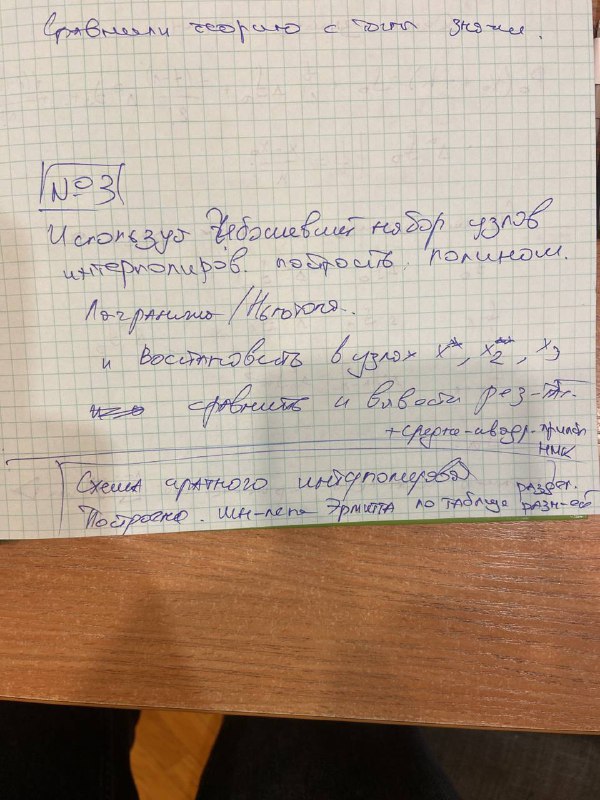 Сравнили теорию с точн знач.
№3
Использует Чебышевский набор узлов
интерполиров. построить полином.
Лагранжа/Ньютона.
и восстановить в узлах x*, x₂**, x₃
сравнить и вывести рез-тат.
+средне-квадр. прибл
НМК
Схема кратного интерполиров
Построено. мн-лена Эрмита по таблице раздел.
разн-ей